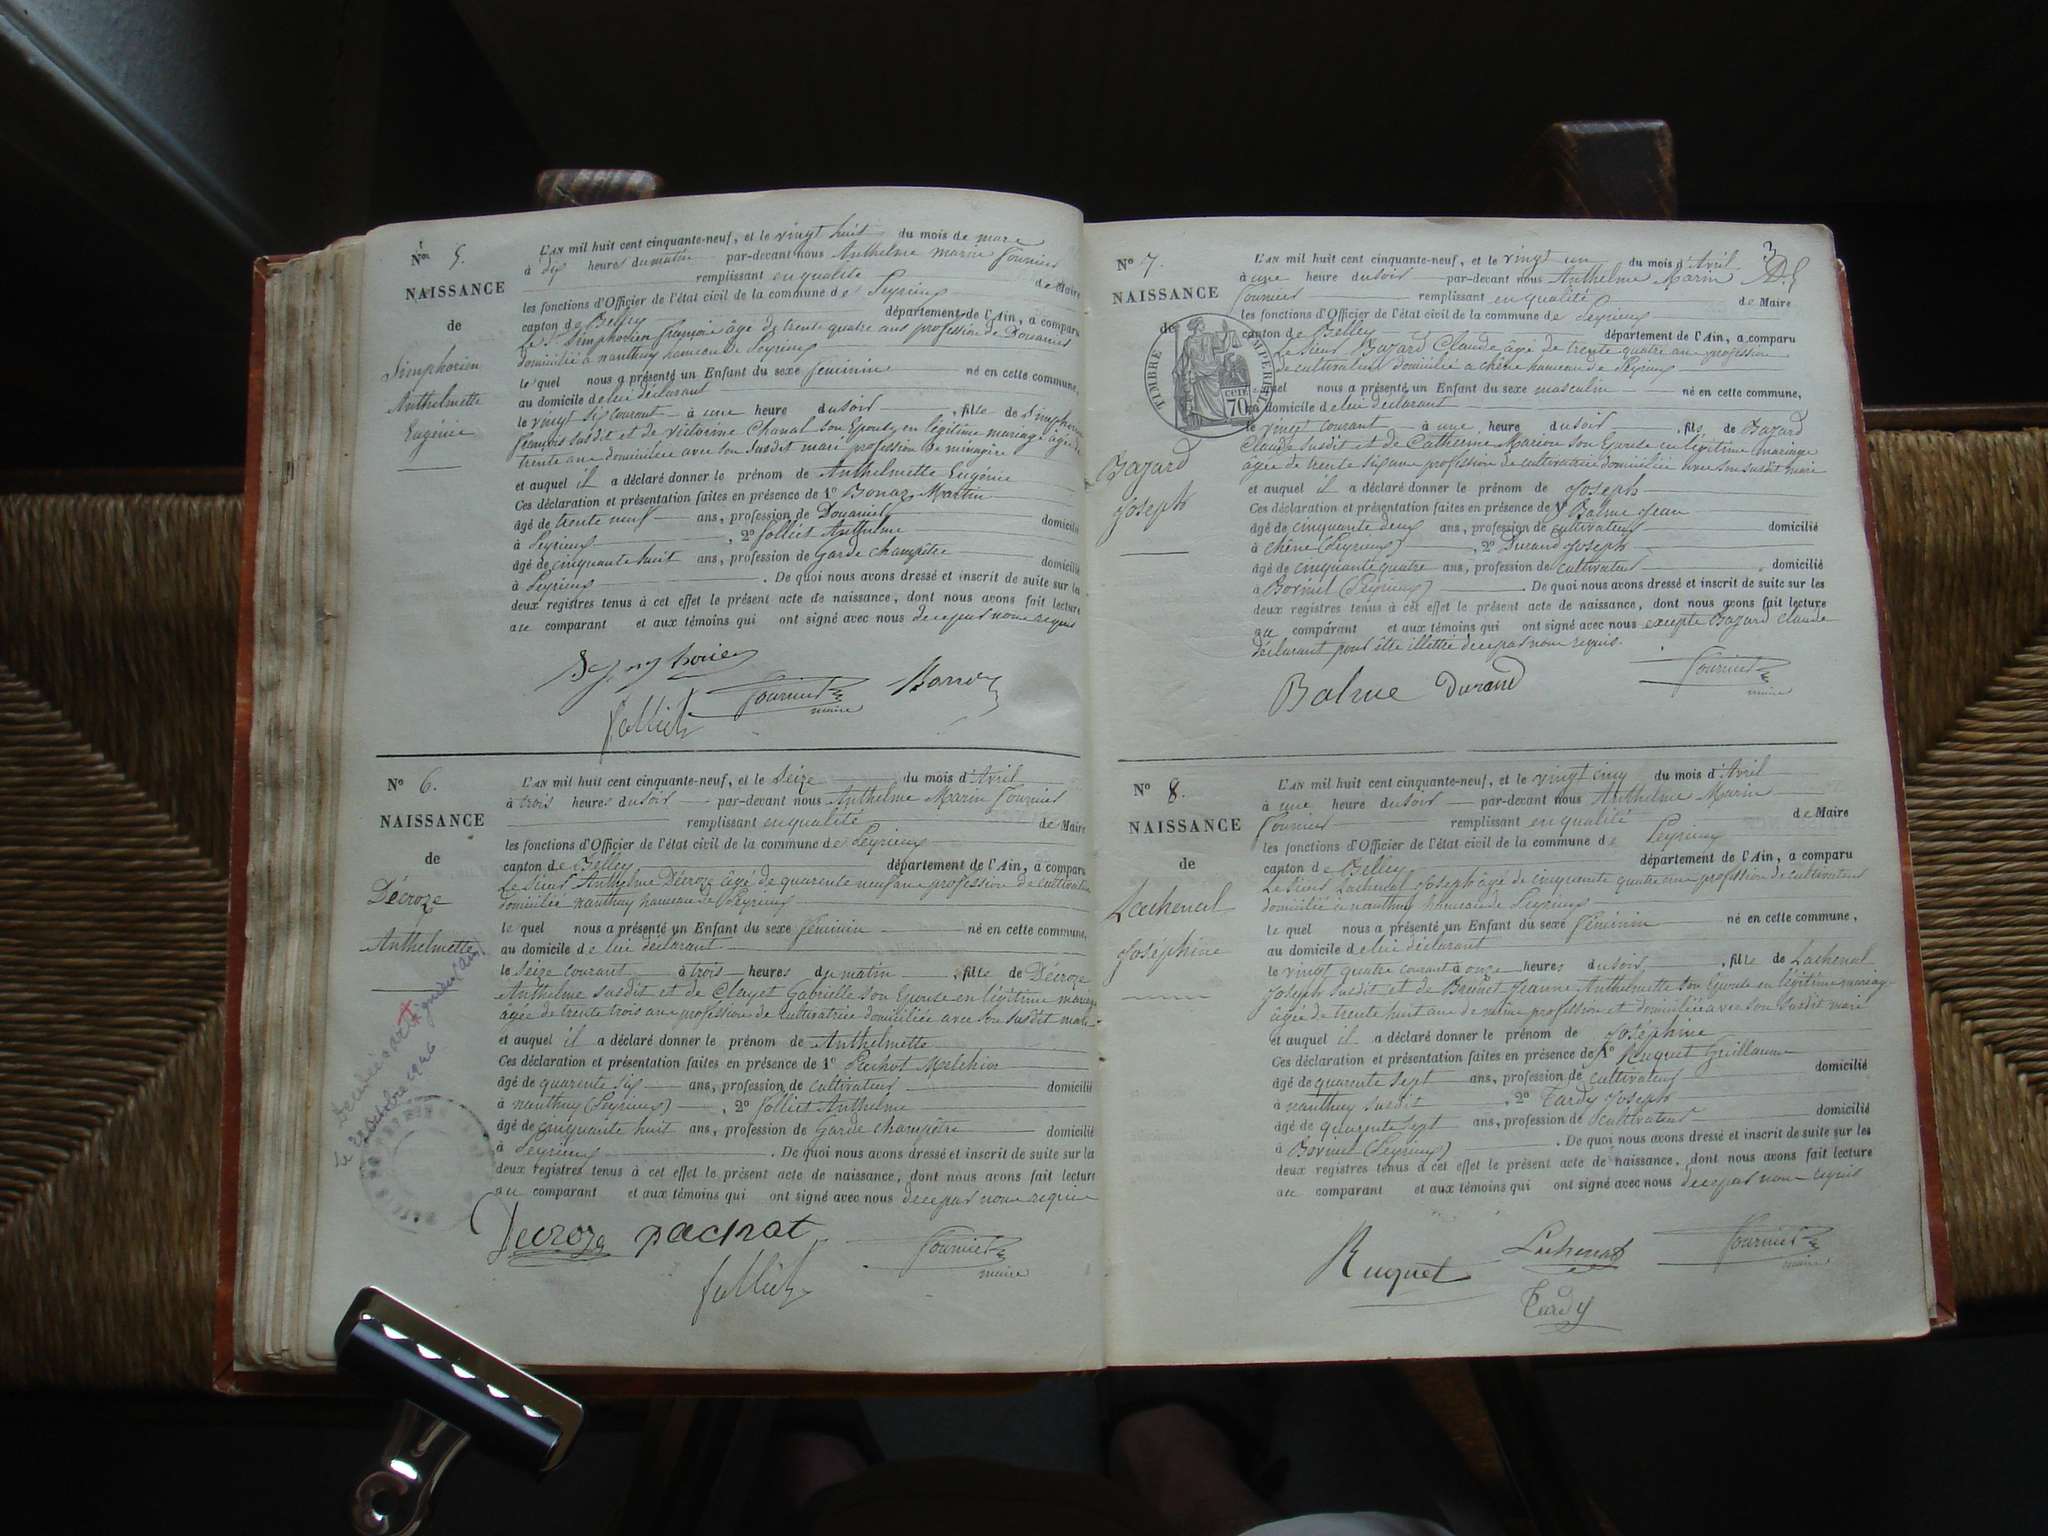 No 5.
NAISSANCE
de
Simphorien
Anthelmette
Eugénie
L'AN mil huit cent cinquante-neuf, et le vingt huit du mois de mars
à dix heures du matin par-devant nous Anthelme Marin Fournier
remplissant en qualité de Maire
les fonctions d'Officier de l'état civil de la commune de Peyrieux
canton de Belley département de l'Ain, a comparu
Le Sr Simphorien François âgé de trente quatre ans profession de Douanier
domicilié à nanthuy hameau de Peyrieux
le quel nous a présenté un Enfant du sexe féminin né en cette commune,
au domicile de lui déclarant
le vingt six courant à une heure du soir , fille de Simphorien
François susdit et de Victorine Chanal son Epouse en légitime mariage âgée de
trente ans domiciliée avec son susdit mari profession de ménagère
et auquel il a déclaré donner le prénom de Anthelmette Eugénie
Ces déclaration et présentation faites en présence de 1o Bonaz Martin
âgé de trente neuf ans, profession de Douanier domicilié
à Peyrieux , 2o Folliet Anthelme
âgé de cinquante huit ans, profession de Garde champêtre domicilié
à Peyrieux . De quoi nous avons dressé et inscrit de suite sur les
deux registres tenus à cet effet le présent acte de naissance, dont nous avons fait lecture
au comparant et aux témoins qui ont signé avec nous de ce par nous requis
Fournier
maire
Folliet
No 6.
NAISSANCE
de
Décroze
Anthelmette
Décédée à
le 22 octobre 1946
L'AN mil huit cent cinquante-neuf, et le Seize du mois d'Avril
à trois heures du soir par-devant nous Anthelme Marin Fournier
remplissant en qualité de Maire
les fonctions d'Officier de l'état civil de la commune de Peyrieux
canton de Belley département de l'Ain, a comparu
Le Sieur Anthelme Décroze âgé de quarente neuf ans profession de cultivateur
domicilié nanthuy hameau de Peyrieux
le quel nous a présenté un Enfant du sexe féminin né en cette commune,
au domicile de lui déclarant
le seize courant à trois heures du matin , fille de Décroze
Anthelme susdit et de Clayet Gabrielle son Epouse en légitime mariage
âgée de trente trois ans profession de cultivatrice domiciliée avec son susdit mari
et auquel il a déclaré donner le prénom de Anthelmette
Ces déclaration et présentation faites en présence de 1o Pachot Melchior
âgé de quarente six ans, profession de cultivateur domicilié
à nanthuy (Peyrieux) , 2o Folliet Anthelme
âgé de cinquante huit ans, profession de Garde champêtre domicilié
à Peyrieux . De quoi nous avons dressé et inscrit de suite sur les
deux registres tenus à cet effet le présent acte de naissance, dont nous avons fait lecture
au comparant et aux témoins qui ont signé avec nous de ce par nous requis
Decroze pachat Fournier
maire
Folliet
3
No 7.
NAISSANCE
de
TIMBRE IMPERIAL
CENT. 70
Bazard
Joseph
L'AN mil huit cent cinquante-neuf, et le vingt un du mois d'Avril
à une heure du soir par-devant nous Anthelme Marin
Fournier remplissant en qualité de Maire
les fonctions d'Officier de l'état civil de la commune de Peyrieux
canton de Belley département de l'Ain, a comparu
Le Sieur Bazard Claude âgé de trente quatre ans profession
de cultivateur domicilié à chêne hameau de Peyrieux
le quel nous a présenté un Enfant du sexe masculin né en cette commune,
au domicile de lui déclarant
le vingt courant à une heure du soir , fils de Bazard
Claude susdit et de Catherine Marion son Epouse en légitime mariage
âgée de trente six ans profession de cultivatrice domiciliée avec son susdit mari
et auquel il a déclaré donner le prénom de Joseph
Ces déclaration et présentation faites en présence de 1o Balme Jean
âgé de cinquante deux ans, profession de cultivateur domicilié
à chêne (Peyrieux) , 2o Durand Joseph
âgé de cinquante quatre ans, profession de cultivateur domicilié
à Borinel (Peyrieux) . De quoi nous avons dressé et inscrit de suite sur les
deux registres tenus à cet effet le présent acte de naissance, dont nous avons fait lecture
au comparant et aux témoins qui ont signé avec nous excepté Bazard Claude
déclarant pour être illettré de ce par nous requis.
Balme Durand Fournier
maire
No 8.
NAISSANCE
de
Lachenal
Joséphine
L'AN mil huit cent cinquante-neuf, et le vingt cinq du mois d'Avril
à une heure du soir par-devant nous Anthelme Marin
Fournier remplissant en qualité de Maire
les fonctions d'Officier de l'état civil de la commune de Peyrieux
canton de Belley département de l'Ain, a comparu
Le Sieur Lachenal Joseph âgé de cinquante quatre ans profession de cultivateur
domicilié à nanthuy hameau de Peyrieux
le quel nous a présenté un Enfant du sexe féminin né en cette commune,
au domicile de lui déclarant
le vingt quatre courant à onze heures du soir , fille de Lachenal
Joseph susdit et de Brunet Jeanne Anthelmette son Epouse en légitime mariage
âgée de trente huit ans de même profession et domiciliée avec son susdit mari
et auquel il a déclaré donner le prénom de Joséphine
Ces déclaration et présentation faites en présence de 1o Ruquet Guillaume
âgé de quarente sept ans, profession de cultivateur domicilié
à nanthuy susdit , 2o Tardy Joseph
âgé de quarente sept ans, profession de cultivateur domicilié
à Borinel (Peyrieux) . De quoi nous avons dressé et inscrit de suite sur les
deux registres tenus à cet effet le présent acte de naissance, dont nous avons fait lecture
au comparant et aux témoins qui ont signé avec nous de ce par nous requis
Ruquet Lachenal Fournier
maire
Tardy